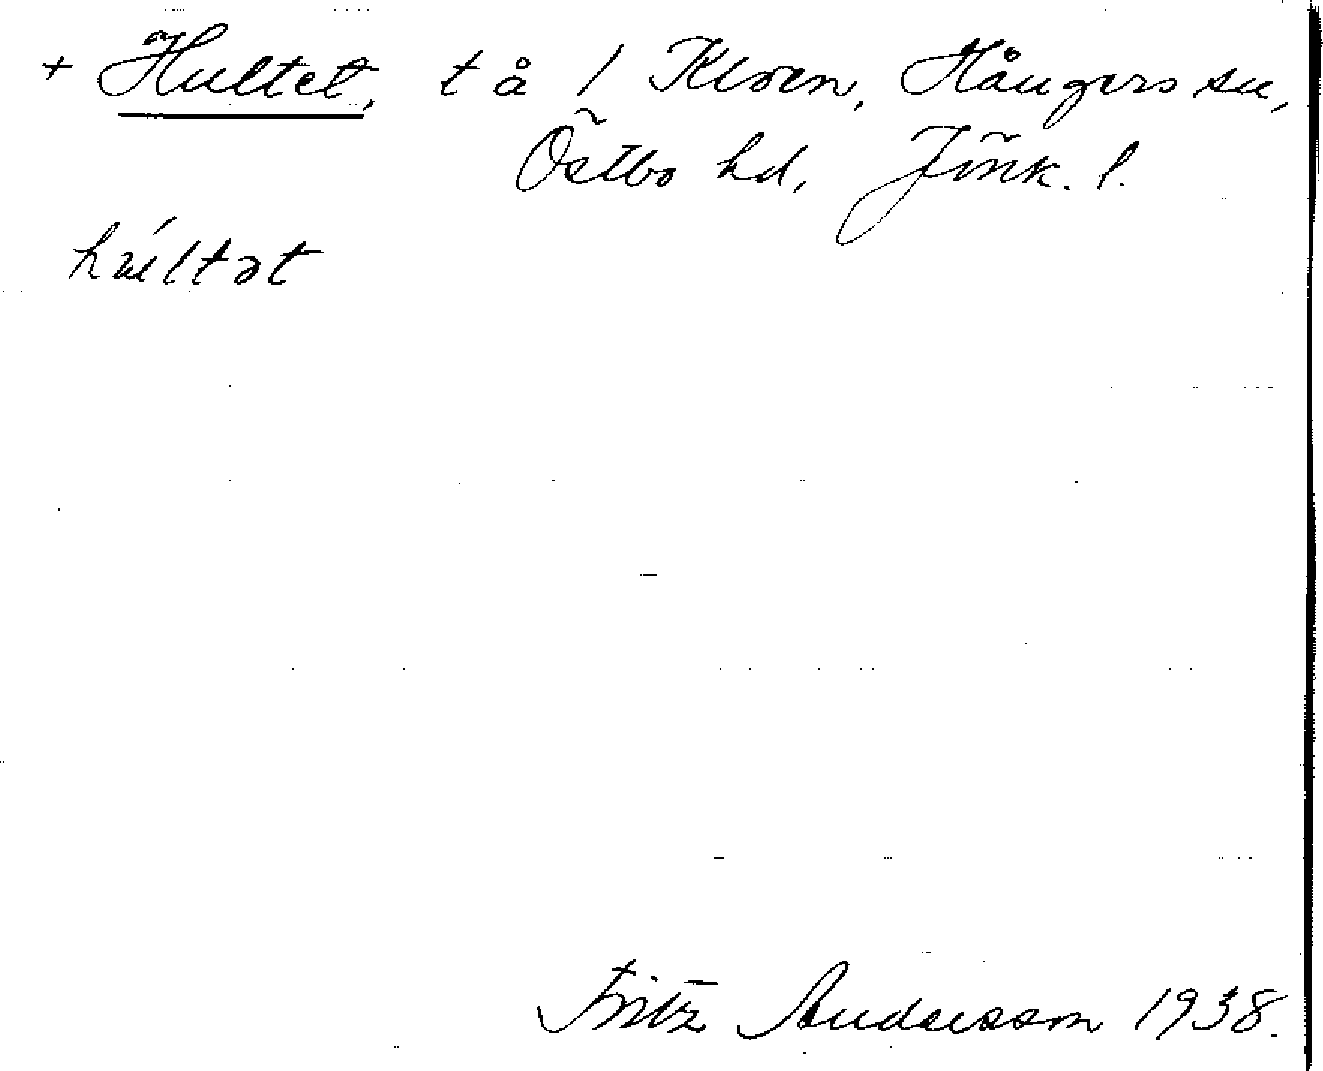 + Hultet, t å 1 Kloen, Hångers sn,
Östbo hd, Jönk. l.
húltət
Fritz Andersson 1938.